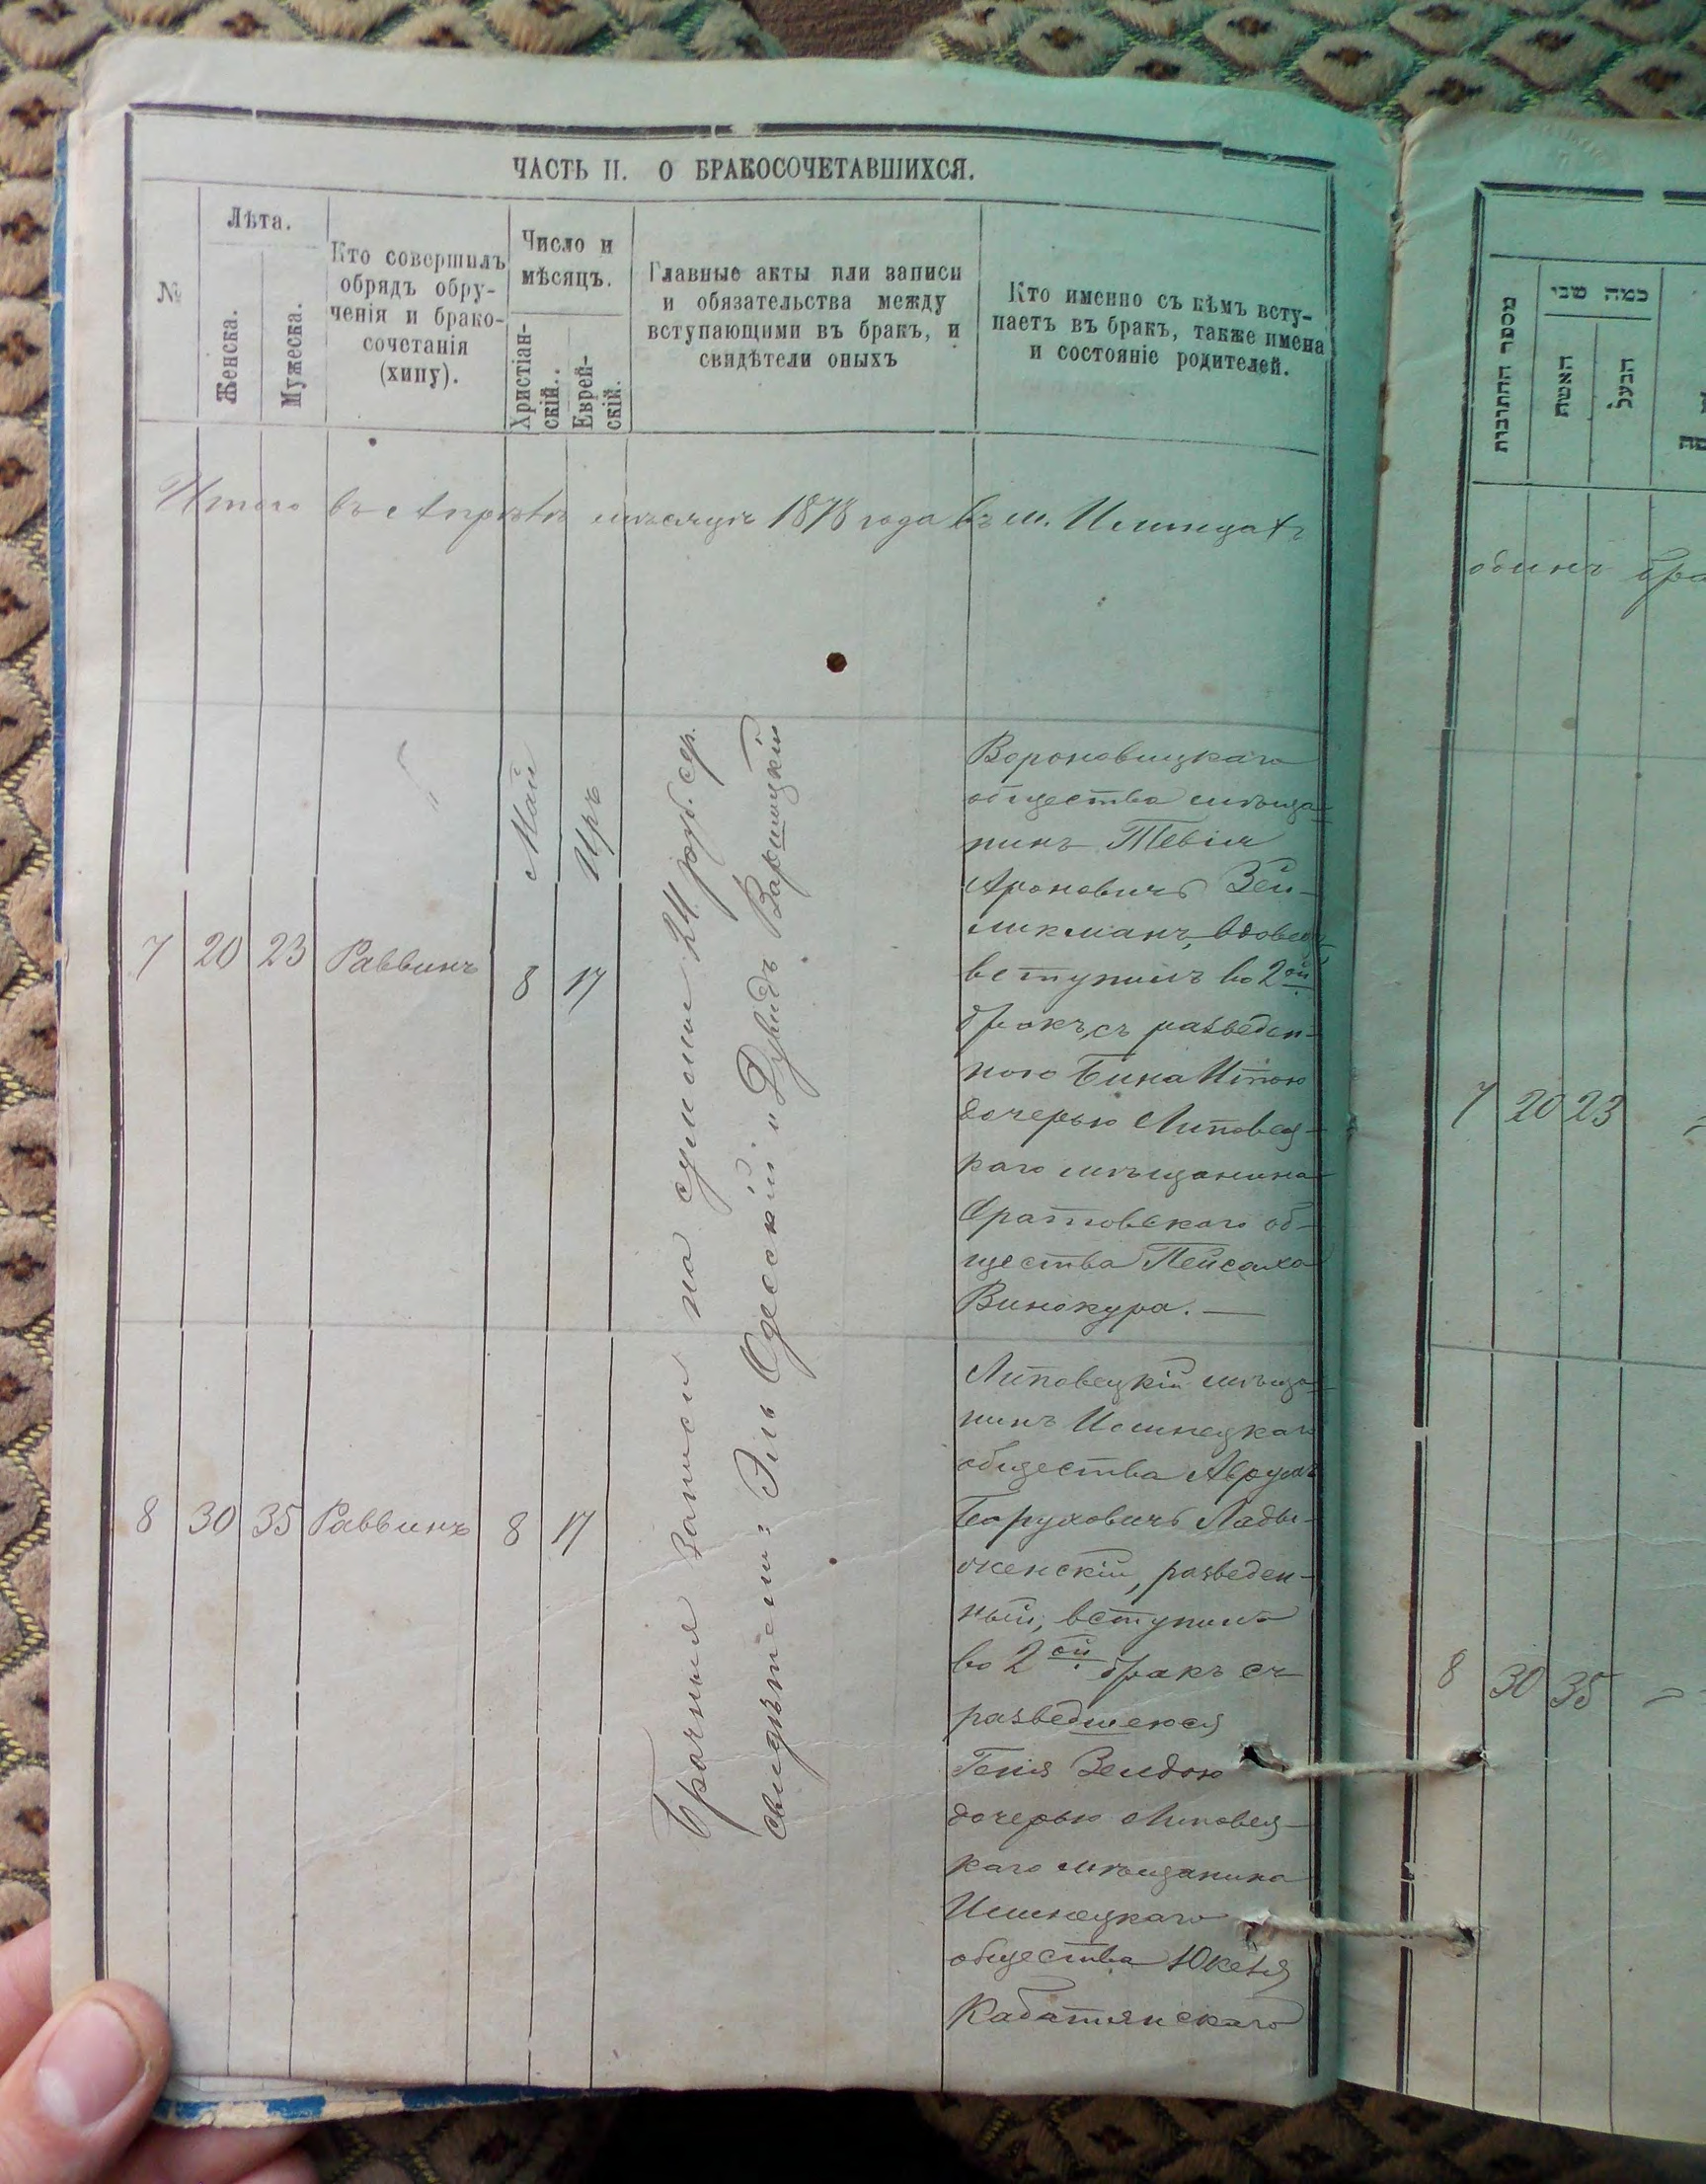 ЧАСТЬ II. О БРАКОСОЧЕТАВШИХСЯ.
№
Лѣта.
Женска.
Мужеска.
Кто совершилъ
обрядъ обру-
ченія и брако-
сочетанія
(хипу).
Число и
мѣсяцъ.
Христіан-
скій.
Еврей-
скій.
Главные акты или записи
и обязательства между
вступающими въ бракъ, и
свидѣтели оныхъ
Кто именно съ кѣмъ всту-
паетъ въ бракъ, также имена
и состояніе родителей.
Итого въ Апрѣлѣ мѣсяцѣ 1878 года въ м. Илинцахъ
Май
Иръ
7 20 23 Раввинъ 8 17
Брачныя записи на суммы 24 руб. сер.
свидѣтели: Эль Одесскій и Дувидъ Варшицкій
Вороновицкаго
общества мѣща-
нинъ Тевія
Ароновичъ Зей-
ликманъ, вдовецъ
вступилъ во 2ой
бракъ съ разведен-
ною Бина Итою
дочерью Липовец-
каго мѣщанина
Оратовскаго об-
щества Пейсаха
Винокура. —
8 30 35 Раввинъ 8 17
Липовецкій мѣща-
нинъ Илинецкаго
общества Аврумъ
Боруховичъ Лады-
женскій, разведен-
ный, вступилъ
во 2ой бракъ съ
разведшеюся
Геня Зелдою
дочерью Липовец-
каго мѣщанина
Илинецкаго
общества Юкеля
Кабатянскаго
מספר החתונות
כמה שני
האשה
הבעל
одинъ бра
7 20 23
8 30 35